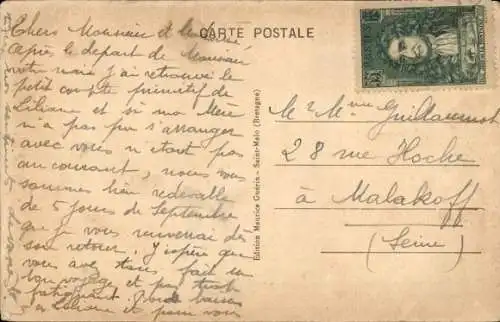 CARTE POSTALE
Chers Monsieur et
Après le départ de
votre mari j'ai retrouvé le
petit compte primitif de
Liliane et si ma Mère
n'a pas pu s'arranger
avec vous n'étant pas
au courant, nous vous
sommes bien redevable
de 5 jours de Septembre
que je vous renverrai dès
son retour. J'espère que
vous avez tous fait un
bon voyage et pas trop
fatiguant. baisers
à Liliane et pour vous
Edition Maurice Guérin - Saint-Malo (Bretagne)
M. Mme Guillaumot
28 rue Hoche
à Malakoff
(Seine)